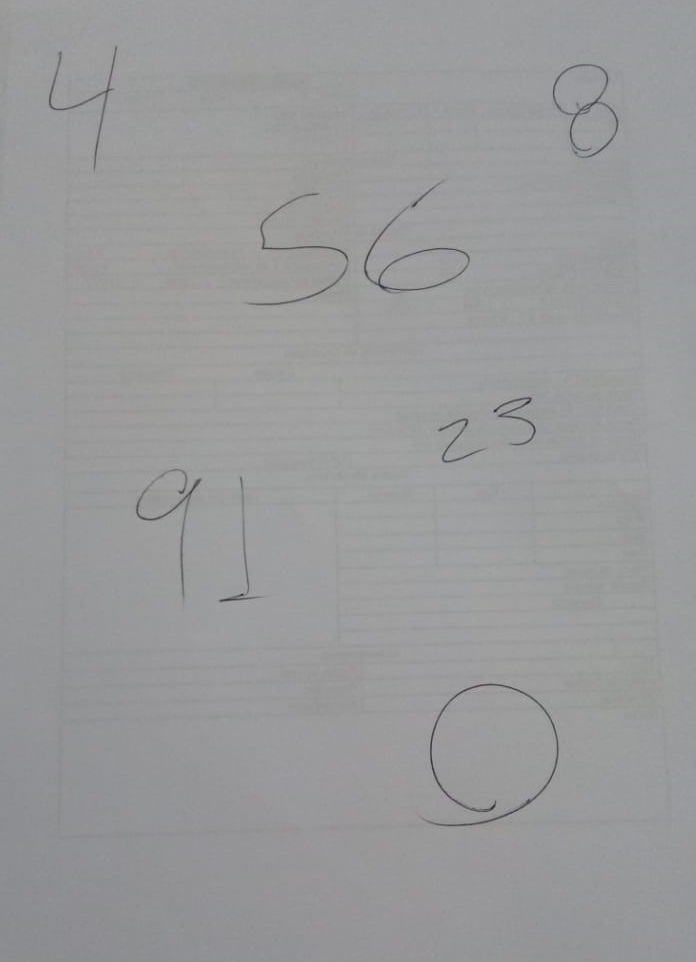 4 8
56
23
91
0